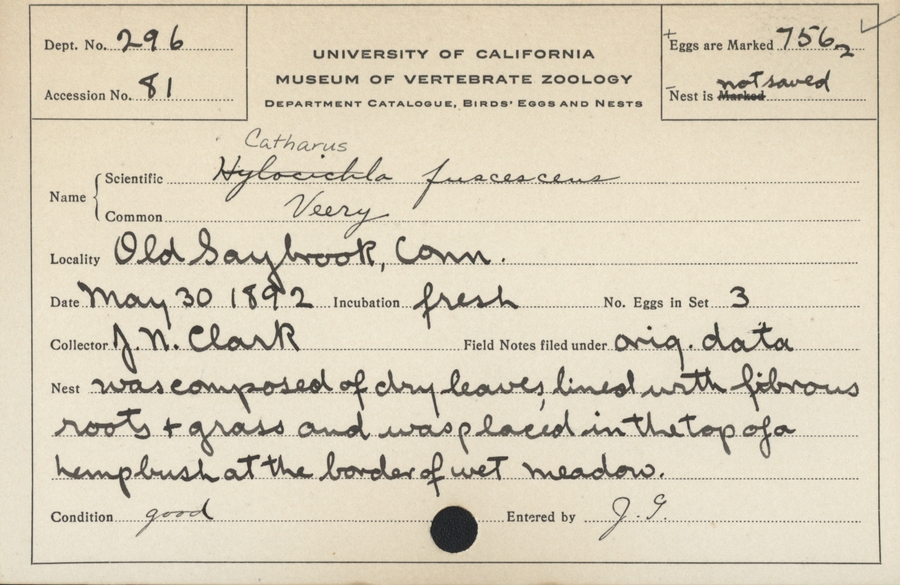 Dept. No. 296
Accession No. 81
UNIVERSITY OF CALIFORNIA
MUSEUM OF VERTEBRATE ZOOLOGY
DEPARTMENT CATALOGUE, BIRDS' EGGS AND NESTS
+ Eggs are Marked 756/2
not saved
- Nest is Marked
Catharus
Name
Scientific Hylocichla fuscescens
Common Veery
Locality Old Saybrook, Conn.
Date May 30 1892 Incubation fresh No. Eggs in Set 3
Collector J. N. Clark Field Notes filed under orig. data
Nest was composed of dry leaves, lined with fibrous
roots + grass and was placed in the top of a
hemp bush at the border of wet meadow.
Condition good Entered by J. G.